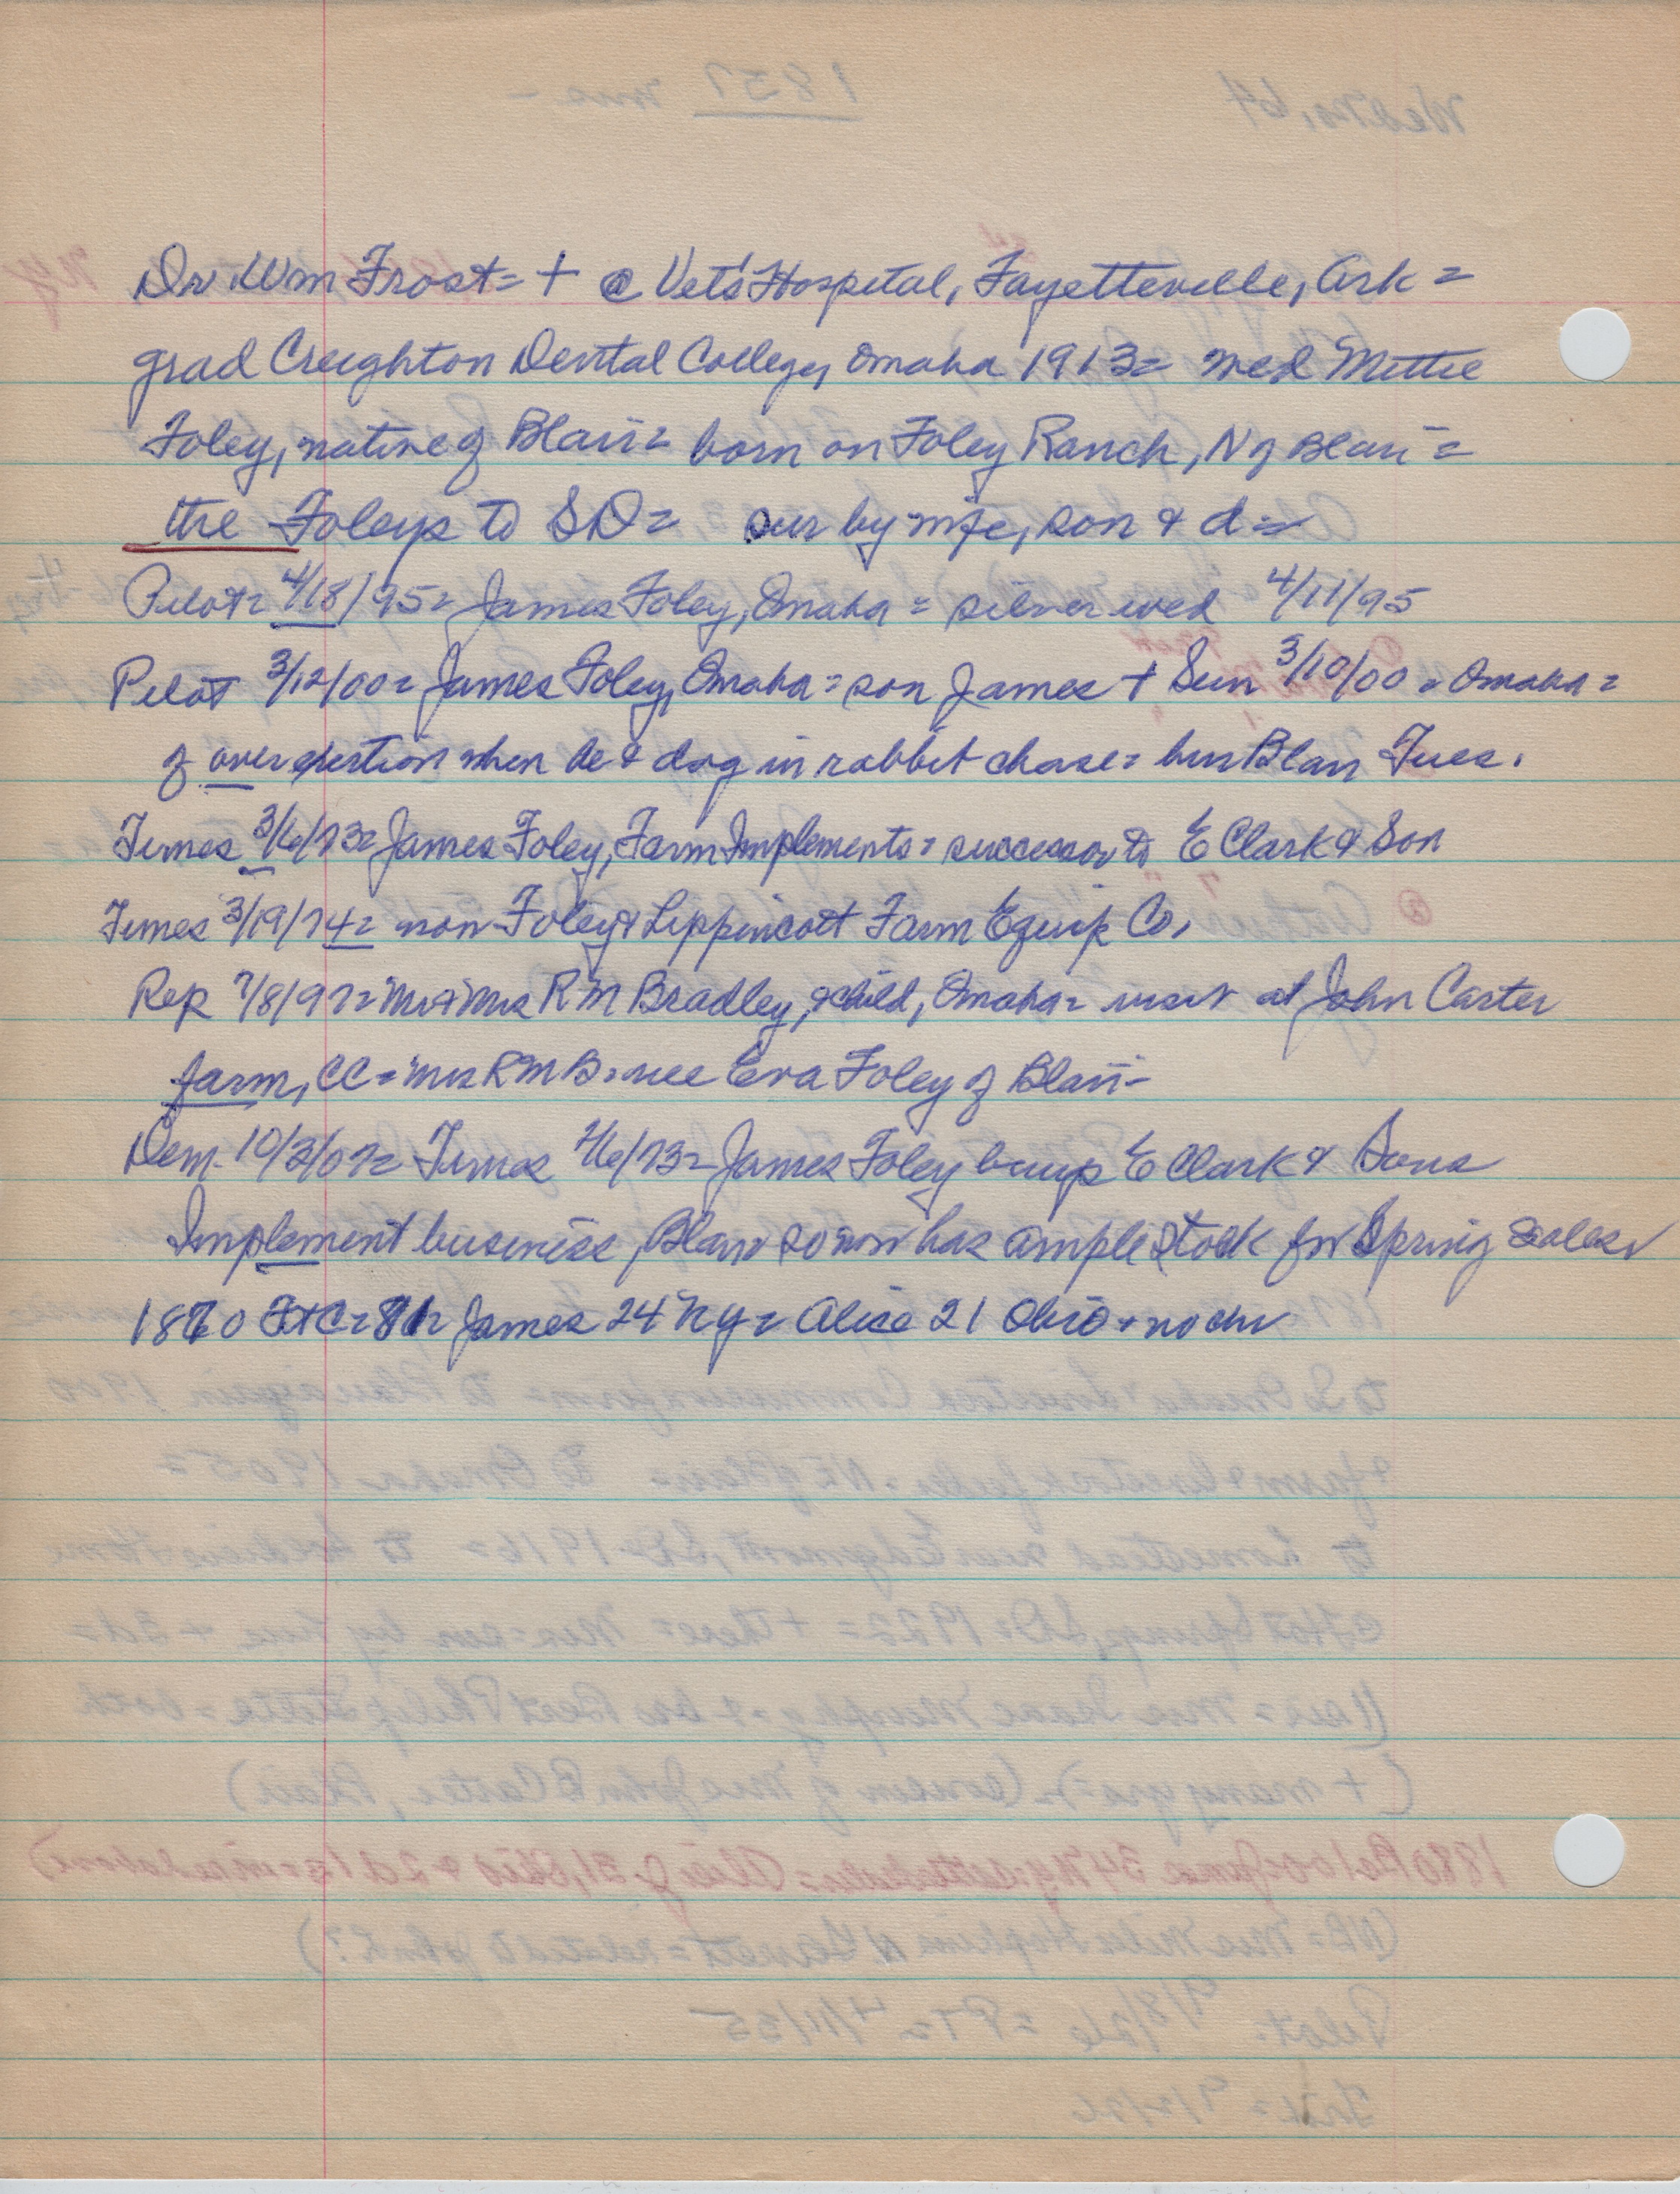 Dr Wm Frost = + @ Vets' Hospital, Fayetteville, Ark =
grad Creighton Dental College, Omaha 1913 = wed Mettie
Foley, native of Blair = born on Foley Ranch, N of Blair =
the Foleys to SD = sur by wife, son & d =
Pilot = 4/18/95 = James Foley, Omaha = silver wed 4/11/95
Pilot 3/12/00 = James Foley, Omaha = son James + Sun 3/10/00 = Omaha =
of over exertion when he & dog in rabbit chase = bur Blair Tues.
Times 3/6/73 = James Foley, Farm Implements = successor to E Clark & Son
Times 3/19/74 = now Foley & Lippincott Farm Equip Co.
Rep 7/8/97 = Mr & Mrs R M Bradley, & child, Omaha = visit at John Carter
farm, CC = Mrs R M B = nee Eva Foley of Blair =
Dem 10/3/07 = Times /6/73 = James Foley buys E Clark & Sons
Implement business, Blair so now has ample stock for Spring sales
1870 = James 24 NY = Alice 21 Ohio = no chr